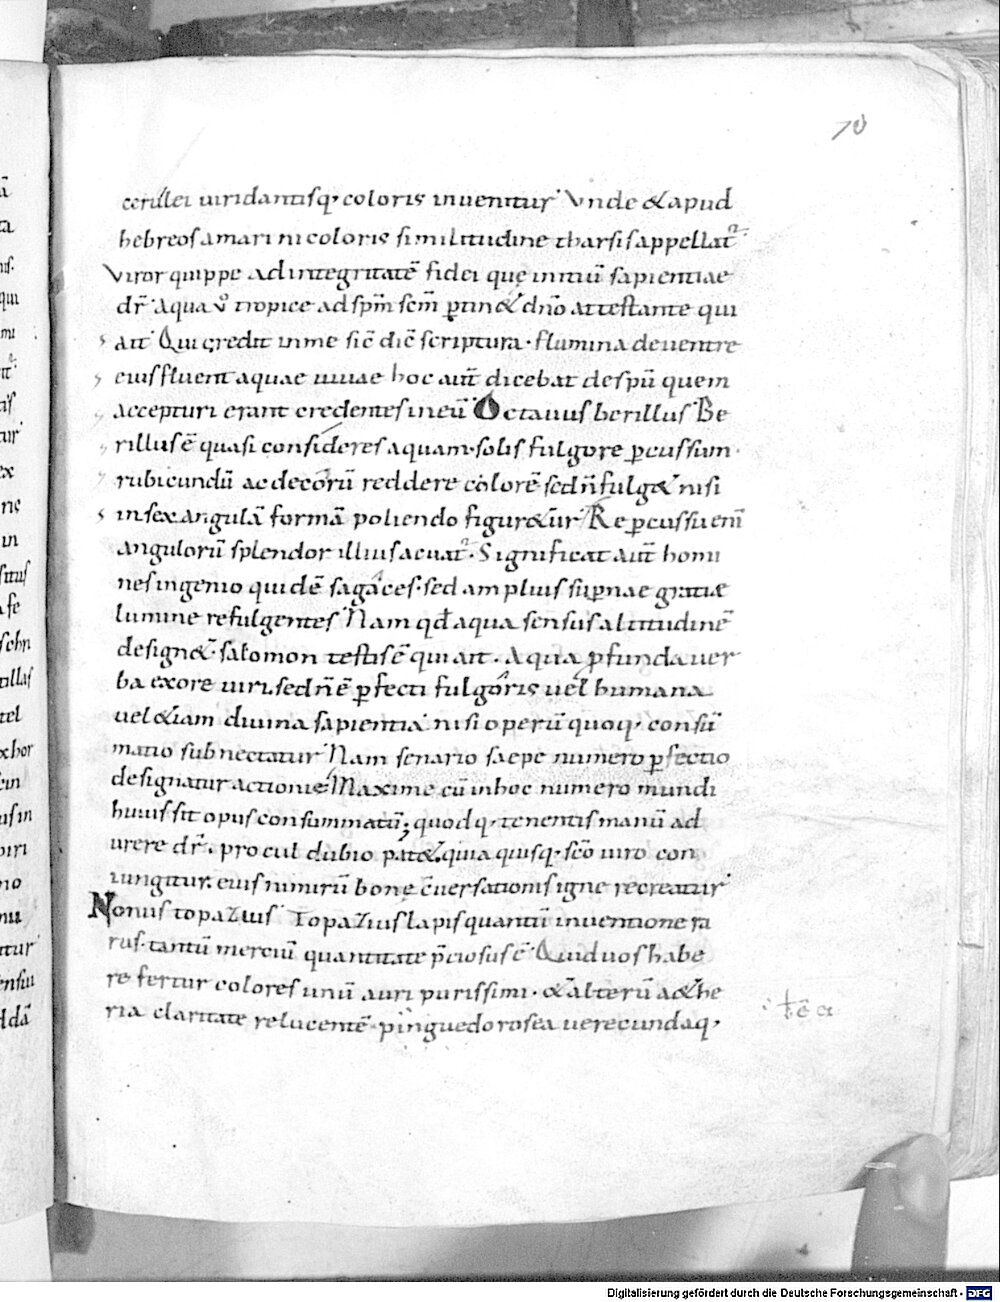 70
cerulei uiridantisq; coloris inuenitur Vnde & apud
hebreos amari ni coloris similitudine tharsis appellat᷑
Viror quippe ad integritatē fidei quę initiū sapientiae
dr̄ Aqua ū tropice ad spm̄ scm̄ ꝑtin& dnō attestante qui
ait Qui credit in me sic̄ dic̄ scriptura · flumina de uentre
eius fluent aquae uiuae hoc aut̄ dicebat de spū quem
accepturi erant credentes in eū Octauus berillus Be
rillus ē quasi consideres aquam solis fulgore ꝑcussam
rubicundū ac decorū reddere colorē sed n̄ fulg& nisi
in sex angulā formā poliendo figur&ur Reꝑcussu enī
angulorū splendor illius acuat᷑ · Significat aut̄ homi
nes ingenio quidē sagaces · sed amplius suꝑnae gratiae
lumine refulgentes Nam qđ aqua sensus altitudinē
design& · salomon testis ē qui ait · Aqua ꝓfunda uer
ba ex ore uiri · sed n̄ ē ꝑfecti fulgoris uel humana
uel &iam diuina sapientia nisi operū quoq; consū
matio subnectatur Nam senario saepe numero ꝑfectio
designatur actionis Maxime cū in hoc numero mundi
huius sit opus consummatū; quodq; tenentis manū ad
urere dr̄ · procul dubio pat& quia quisq; scō uiro con
iungitur · eius nimirū bonę c̄uersationis igne recreatur
Nonus topazius Topazius lapis quantū inuentione ra
rus · tantū merciū quantitate p̄ciosus ē Qui duos habe
re fertur colores unū auri purissimi · & alterū a&he
ria claritate relucentē pinguedo rosea uerecundaq;